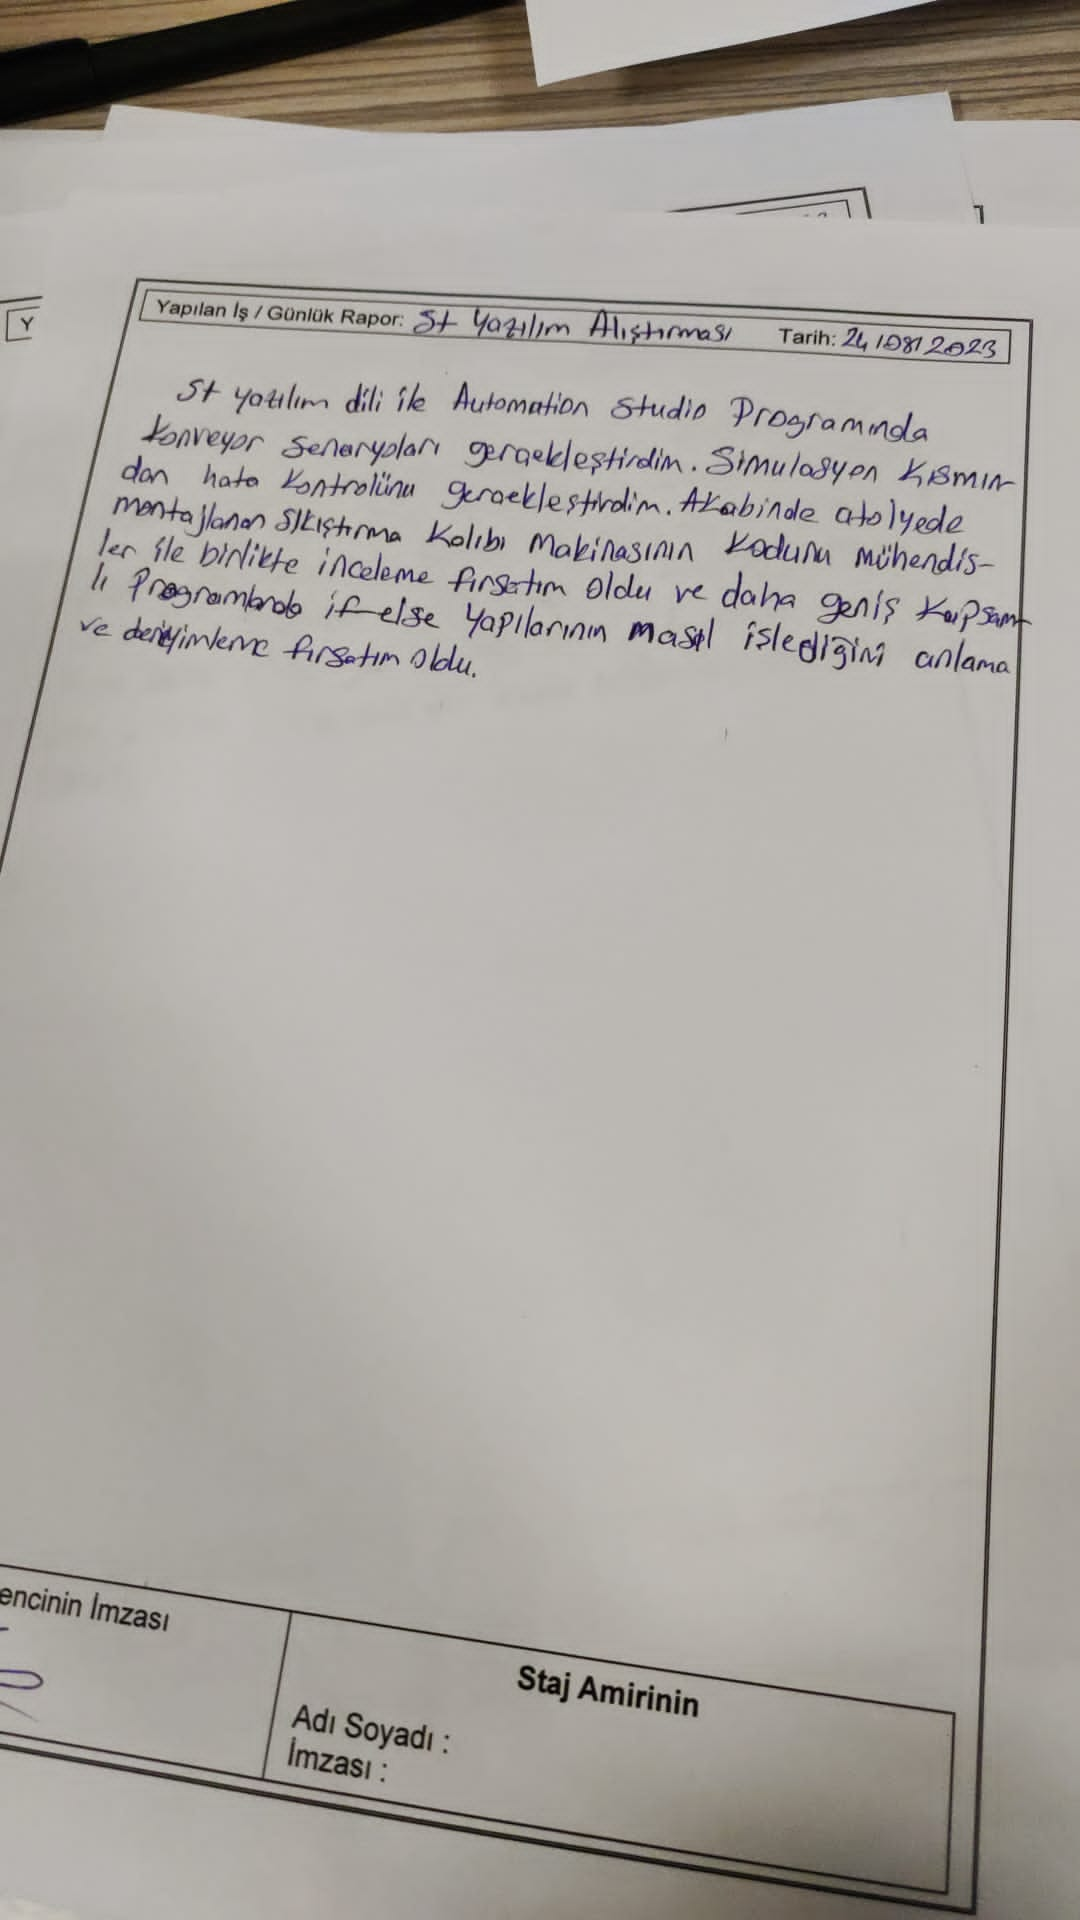 Yapılan İş / Günlük Rapor: St Yazılım Alıştırması Tarih: 24/08/2023
Y
St yazılım dili ile Automation Studio Programında
Konveyor Senaryoları gerçekleştirdim. Simulasyon Kısmın-
dan hata Kontrolünü gerçekleştirdim. Akabinde atolyede
montajlanan Sıkıştırma Kalıbı Makinasının Kodunu mühendis-
ler ile birlikte inceleme fırsatım oldu ve daha geniş Kapsam-
lı Programlarda if-else Yapılarının nasıl işlediğini anlama
ve deneyimleme fırsatım oldu.
encinin İmzası
Staj Amirinin
Adı Soyadı :
İmzası :